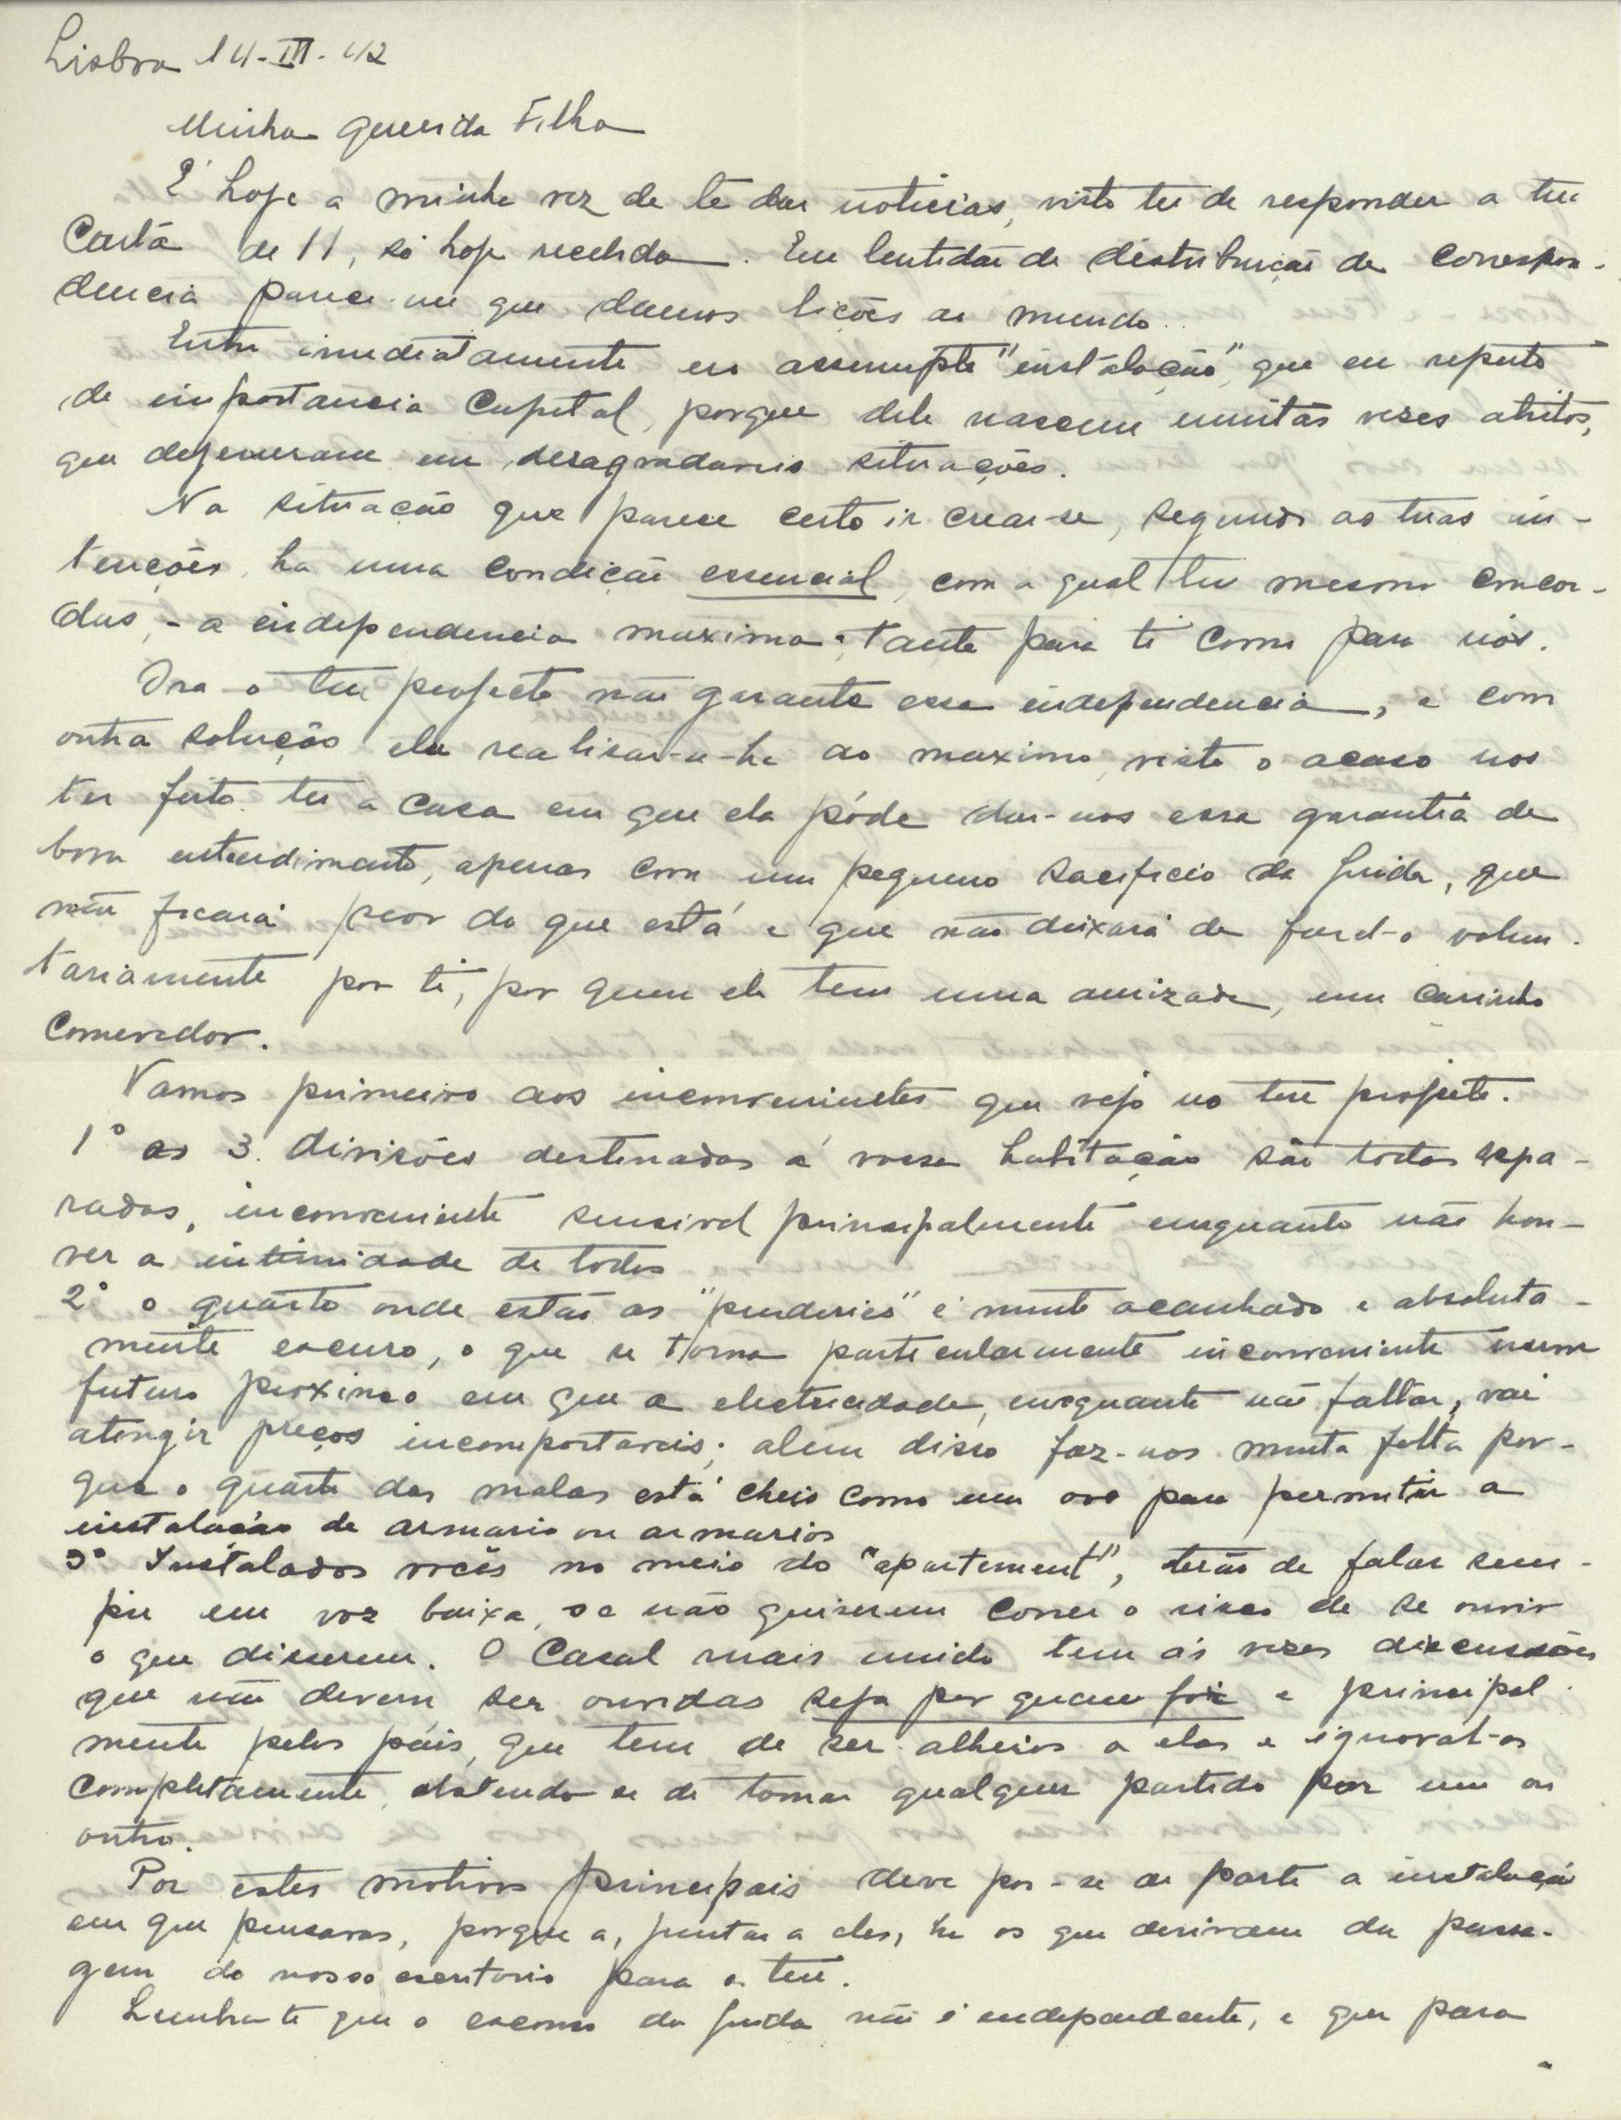 Lisboa 14-III-42
Minha querida Filha
É hoje a minha vez de te dar noticias, visto ter de responder a tua
Carta de 11, só hoje recebida. Em lentidão de distribuição de correspon-
dencia parece-me que damos lições ao mundo.
Entro imediatamente no assumpto "instalação", que eu reputo
de importancia Capital, porque dele nascem muitas vezes atritos,
que degeneram em desagradaveis situações.
Na situação que parece certo ir crear-se, segundo as tuas in-
tenções, ha uma condição essencial, com a qual tu mesma concor-
das, - a independencia maxima, tanto para ti como para nós.
Ora o teu projecto não garante essa independencia, e com
outra solução ela realisar-se-ha ao maximo, visto o acaso nos
ter feito ter a casa em que ela póde dar-nos essa garantia de
bom entendimento, apenas com um pequeno sacrificio da Guida, que
não ficará peor do que está e que não deixará de fazel-o volun-
tariamente por ti, por quem ela tem uma amizade, um carinho
Comovedor.
Vamos primeiro aos inconvenientes que vejo no teu projecto.
1º as 3 divisões destinadas á vossa habitação são todas sepa-
radas, inconveniente sensivel principalmente emquanto não hou-
ver a intimidade de todos
2º o quarto onde estão as "penderies" é muito acanhado e absoluta-
mente escuro, o que se torna particularmente inconveniente num
futuro proximo em que a electricidade, emquanto não faltar, vai
atingir preços incomportaveis; alem disso faz-nos muita falta por-
que o quarto das malas está cheio como um ovo para permitir a
instalação de armario ou armarios
3º Instalados vocês no meio do "apartement", terão de falar sem-
pre em voz baixa, se não quiserem correr o risco de se ouvir
o que disserem. O Casal mais unido tem ás vezes discussões
que não devem ser ouvidas seja por quem for e principal-
mente pelos páis, que tem de ser alheios a elas e ignoral-as
completamente, abstendo-se de tomar qualquer partido por um ou
outro.
Por estes motivos principais deve pôr-se de parte a instalação
em que pensavas, porque a, juntar a eles, ha os que derivam da passa-
gem do nosso escritorio para o teu.
Lembra-te que o escorio da Guida não é independente, e que para